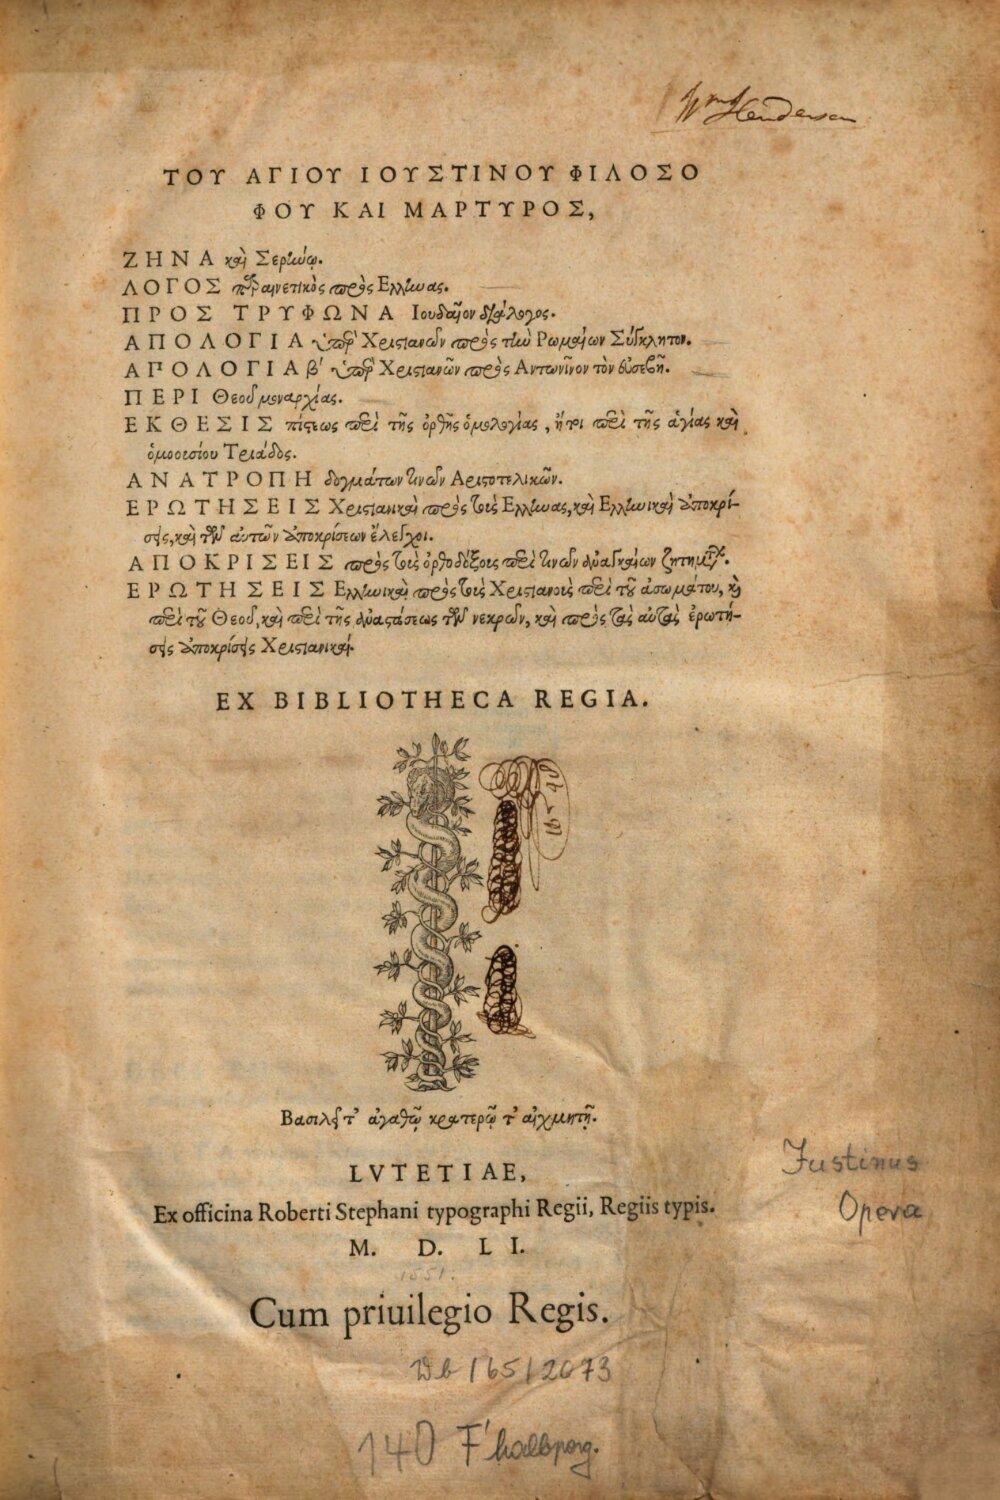 Wm Henderson
ΤΟΥ ΑΓΙΟΥ ΙΟΥΣΤΙΝΟΥ ΦΙΛΟΣΟ
ΦΟΥ ΚΑΙ ΜΑΡΤΥΡΟΣ,
ΖΗΝΑ καὶ Σερήνῳ.
ΛΟΓΟΣ παραινετικὸς πρὸς Ελληνας.
ΠΡΟΣ ΤΡΥΦΩΝΑ Ιουδαῖον διάλογος.
ΑΠΟΛΟΓΙΑ ὑπὲρ Χριστιανῶν πρὸς τὴν Ρωμαίων Σύγκλητον.
ΑΠΟΛΟΓΙΑ β' ὑπὲρ Χριστιανῶν πρὸς Αντωνῖνον τὸν εὐσεβῆ.
ΠΕΡΙ Θεοῦ μοναρχίας.
ΕΚΘΕΣΙΣ πίστεως περὶ τῆς ὀρθῆς ὁμολογίας, ἤτοι περὶ τῆς ἁγίας καὶ
ὁμοουσίου Τριάδος.
ΑΝΑΤΡΟΠΗ δογμάτων τινῶν Αριστοτελικῶν.
ΕΡΩΤΗΣΕΙΣ Χριστιανικαὶ πρὸς τοὺς Ελληνας, καὶ Ελληνικαὶ ἀποκρί-
σεις, καὶ τῶν αὐτῶν ἀποκρίσεων ἔλεγχοι.
ΑΠΟΚΡΙΣΕΙΣ πρὸς τοὺς ὀρθοδόξους περὶ τινῶν ἀναγκαίων ζητημάτων.
ΕΡΩΤΗΣΕΙΣ Ελληνικαὶ πρὸς τοὺς Χριστιανοὺς περὶ τοῦ ἀσωμάτου, καὶ
περὶ τοῦ Θεοῦ, καὶ περὶ τῆς ἀναστάσεως τῶν νεκρῶν, καὶ πρὸς τὰς αὐτὰς ἐρωτή-
σεις ἀποκρίσεις Χριστιανικαί.
EX BIBLIOTHECA REGIA.
Βασιλεῖ τ' ἀγαθῷ κρατερῷ τ' αἰχμητῇ.
LVTETIAE,
Ex officina Roberti Stephani typographi Regii, Regiis typis.
M. D. LI.
1551.
Cum priuilegio Regis.
Justinus
Opera
165/2673
140 F' halbperg.